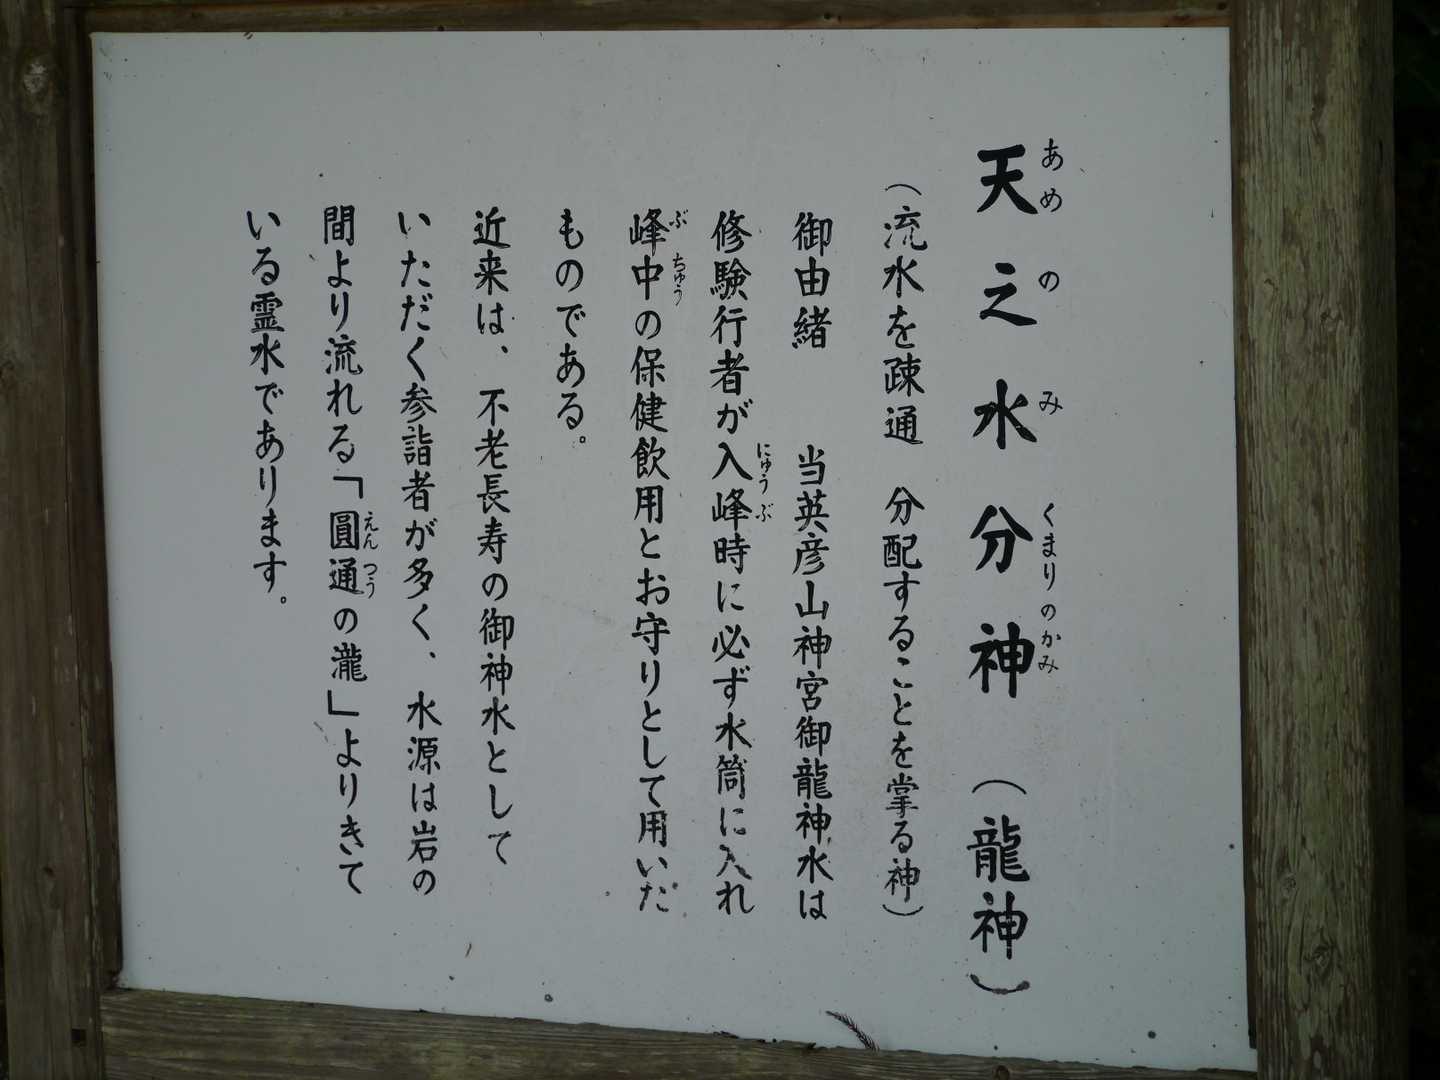 天之水分神（龍神）
あめ の み くまりのかみ
（流水を疎通　分配することを掌る神）
御由緒　当英彦山神宮御龍神水は
修験行者が入峰時に必ず水筒に入れ
にゅうぶ
峰中の保健飲用とお守りとして用いだ
ぶちゅう
ものである。
近来は、不老長寿の御神水として
いただく参詣者が多く、水源は岩の
間より流れる「圓通の瀧」よりきて
えんつう
いる霊水であります。